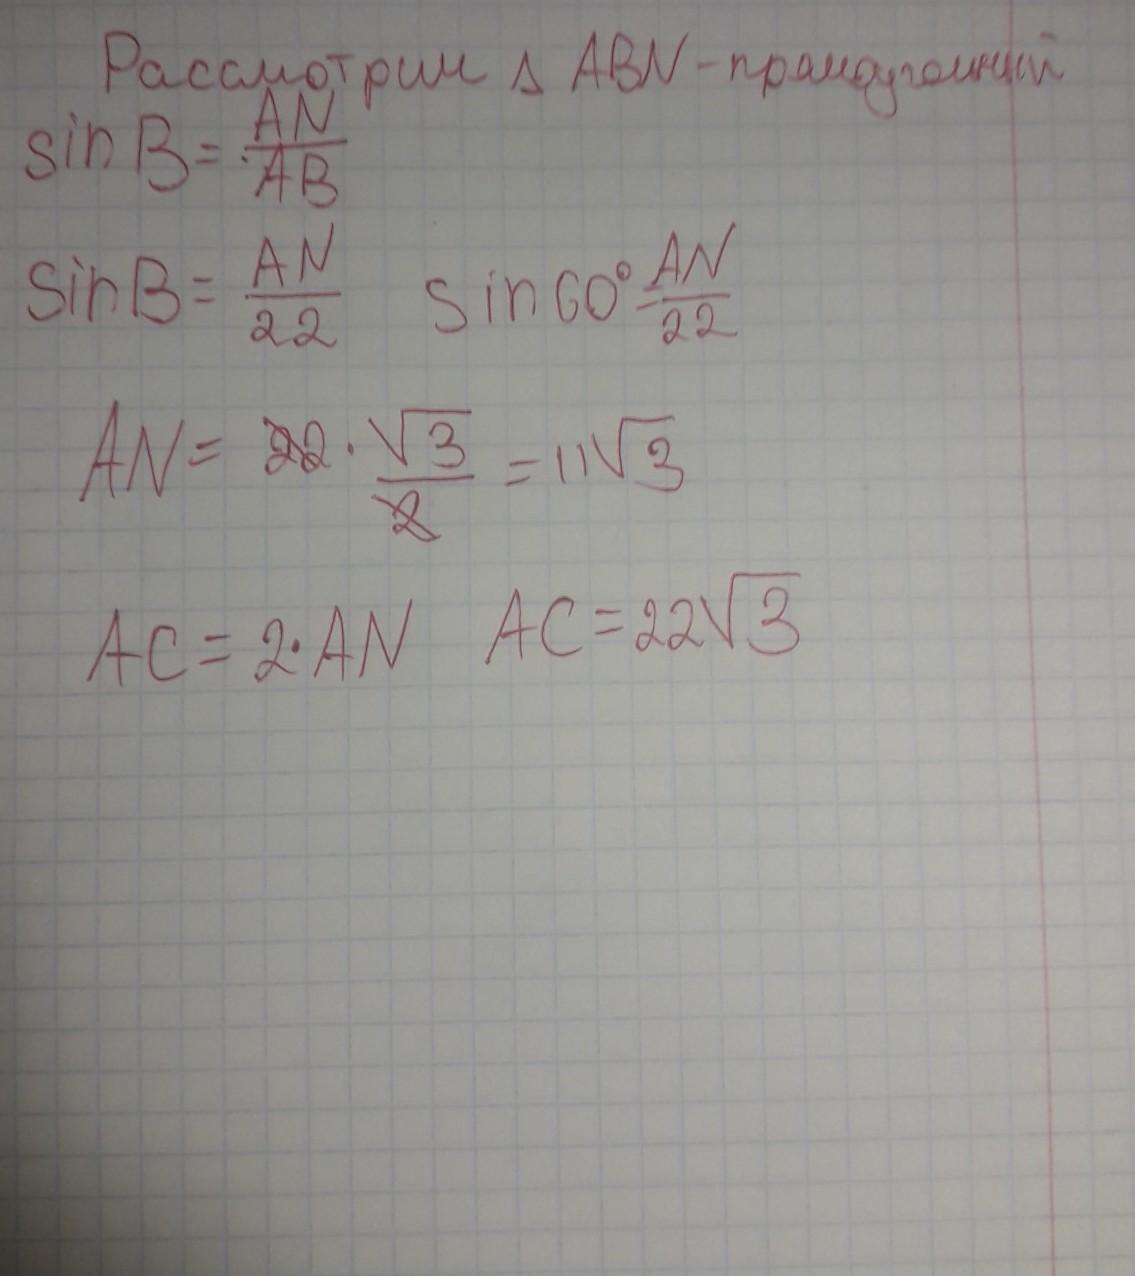 Рассмотрим Δ ABN - прямоугольный
sin B = AN/AB
sin B = AN/22 sin 60° = AN/22
AN = 22 · √3/2 = 11√3
AC = 2 · AN AC = 22√3